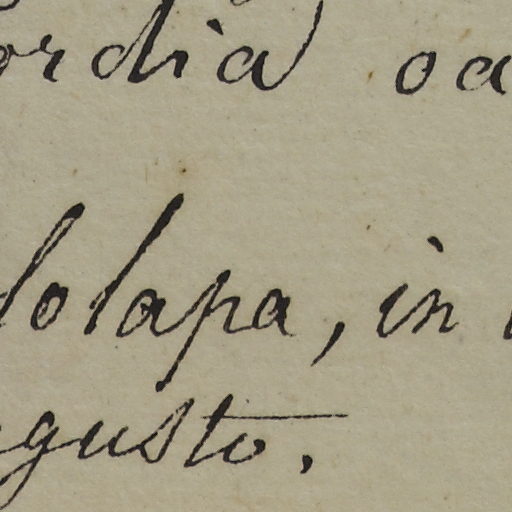 ordia oa
lolapa, in
gusto.